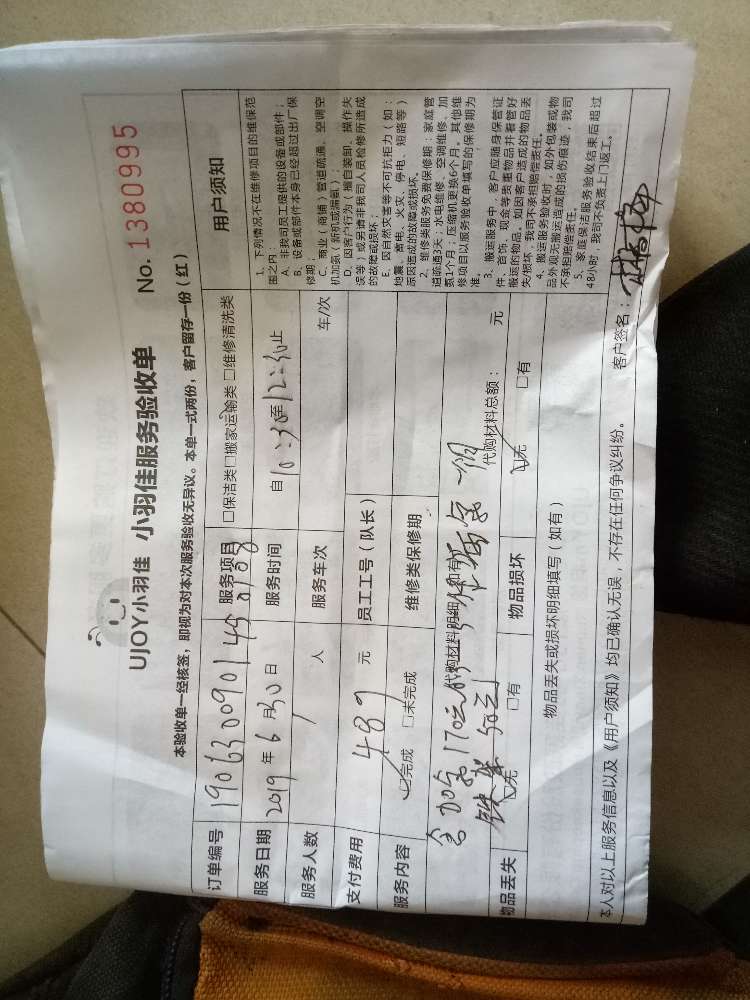 UJOY小羽佳 小羽佳服务验收单 No. 1380995
本验收单一经核签，即视为对本次服务验收无异议。本单一式两份，客户留存一份（红）
订单编号 服务项目 □保洁类□搬家运输类 □维修清洗类
服务日期 2019年6月30日 服务时间 自10:30至12:30止
服务人数 1 人 服务车次 车/次
支付费用 489 元 员工工号（队长）
服务内容 ☑完成 □未完成 维修类保修期
代购材料明细（如有）
含加氟170元
铁架50元
代购材料总额： 元
物品丢失 ☑无 □有 物品损坏 ☑无 □有
物品丢失或损坏明细填写（如有）
用户须知
1、下列情况不在维修项目的维保范
围之内：
A、非我司员工提供的设备或部件；
B、设备或部件本身已经超过出厂保
修期
C、商业（商铺）管道疏通、空调空
机加氨（新机或漏氨）；
D、因客户行为（擅自装卸、操作失
误等）或另请非我司人员检修所造成
的故障或损坏；
E、因自然灾害等不可抗拒力（如：
地震、雷电、火灾、停电、短路等）
原因造成的故障或损坏。
2、维修类服务免费保修期：家庭管
道疏通3天；水电维修、空调维修、加
氨1个月；压缩机更换6个月。其他维
修项目以服务验收单填写的保修期为
准。
3、搬运服务中，客户应随身保管证
件、首饰、现金等贵重物品并看管好
搬运的物品。如因客户造成的物品丢
失/损坏，我司不承担赔偿责任。
4、搬运服务验收时，如外包装或物
品外观无搬运造成的损伤痕迹，我司
不承担赔偿责任。
5、家庭保洁服务验收结束后超过
48小时，我司不负责上门返工。
本人对以上服务信息以及《用户须知》均已确认无误，不存在任何争议纠纷。 客户签名：